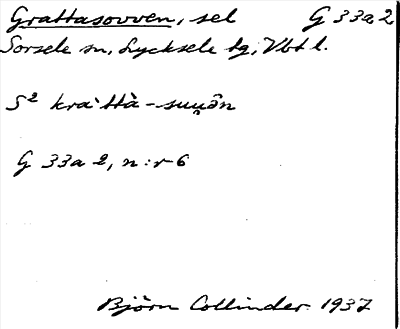 Grattasovven, sel G 33a2
Sorsele sn, Lycksele tg, Vbtl.
S² kra`ttà-suu̯ôn
G 33a 2, n:r 6
Björn Collinder 1937